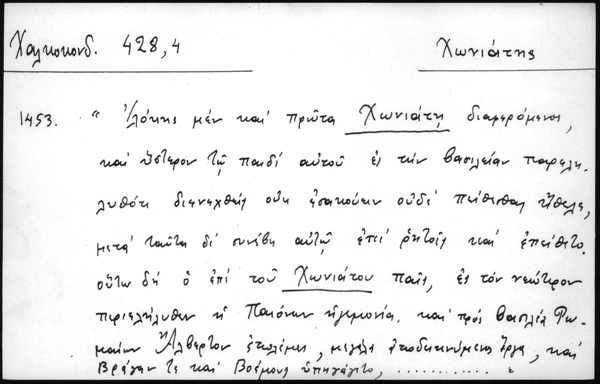 Χαλκοκονδ. 428,4 Χωνιάτης
1453. “ Ἰλόκης μὲν καὶ πρῶτα Χωνιάτῃ διαφερόμενος,
καὶ ὕστερον τῷ παιδὶ αὐτοῦ ἐς τὴν βασιλείαν παρελη-
λυθότι διενεχθεὶς οὐκ ἐσακούειν οὐδὲ πείθεσθαι ἤθελε,
μετὰ ταῦτα δὲ συνέβη αὐτῷ ἐπὶ ῥητοῖς καὶ ἐπείθετο.
οὕτω δὴ ὁ ἐπὶ τοῦ Χωνιάτου παῖς, ἐς τὸν νεώτερον
περιεληλύθει ἡ Παιόνων ἡγεμονία. καὶ πρὸς βασιλέα Ῥω-
μαίων Ἀλβέρτον ἐπολέμει, μεγάλα ἀποδεικνύμενος ἔργα, καὶ
Βράγαν τε καὶ Βοέμους ὑπηγάγετο, ............ „